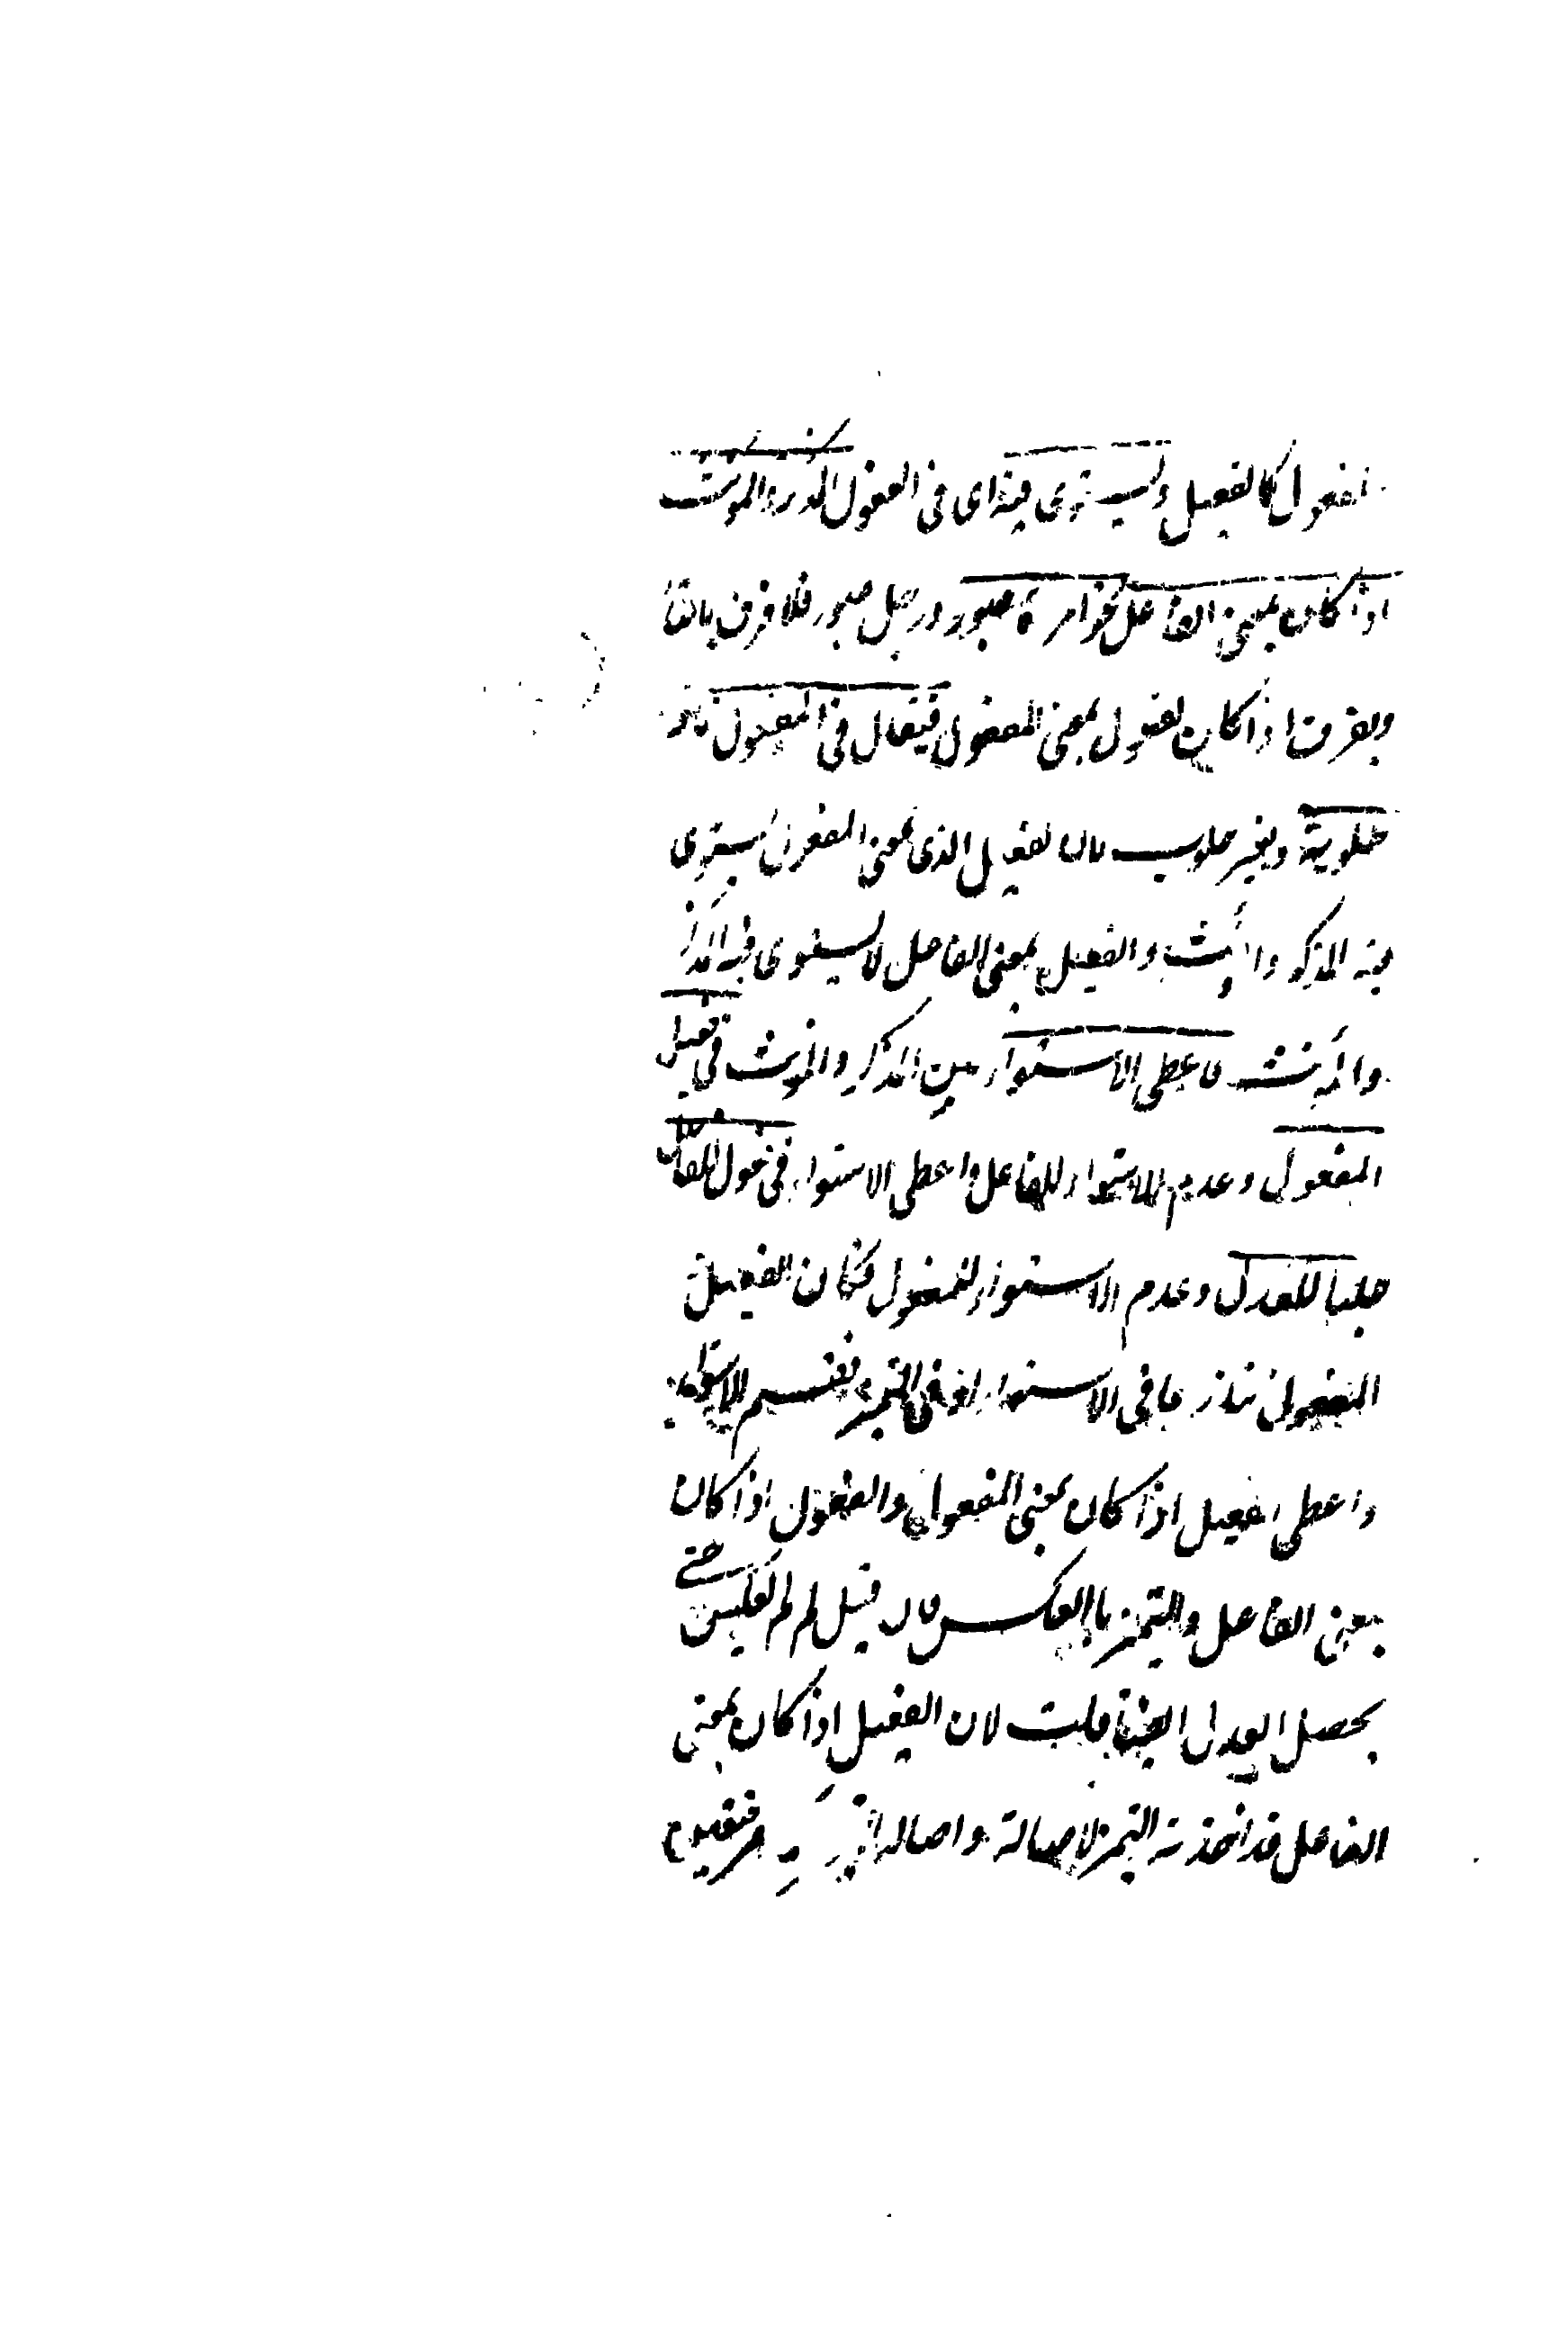 لمفعول كالفعيل ويستوى فيه اى فى الفعول المذكر والمونث
اذا كان بمعنى الفاعل نحو امرءة صبور ورجل صبور فلا فرق بالتاء
ويفرق اذا كان لفعول بمعنى المفعول فيقال فى المفعول ناقة
حلوبة وبعير حلوب فان الفعيل الذى بمعنى المفعول يستوى
فيه المذكر والمؤنث والفعيل بمعنى الفاعل لا يستوى فيه المذكر
والمؤنث فاعطى الاستواء بين المذكر والمؤنث فى فعيل
المفعول وعدم الاستواء للفاعل واعطى الاستواء فى فعول للفاعل
طلبا للعدل وعدم الاستواء للمفعول فكان الفعيل
المفعول تنازعا فى الاستواء وفى التميز فقسم الاستواء
واعطى الفعيل اذا كان بمعنى المفعول والفعول اذا كان
بمعنى الفاعل والتميز بالعكس فان قيل لم لم يعكس حتى
يحصل العدل ايضا قلت لان الفعيل اذا كان بمعنى
الفاعل قد اخذته التميز لاصالة واصالة